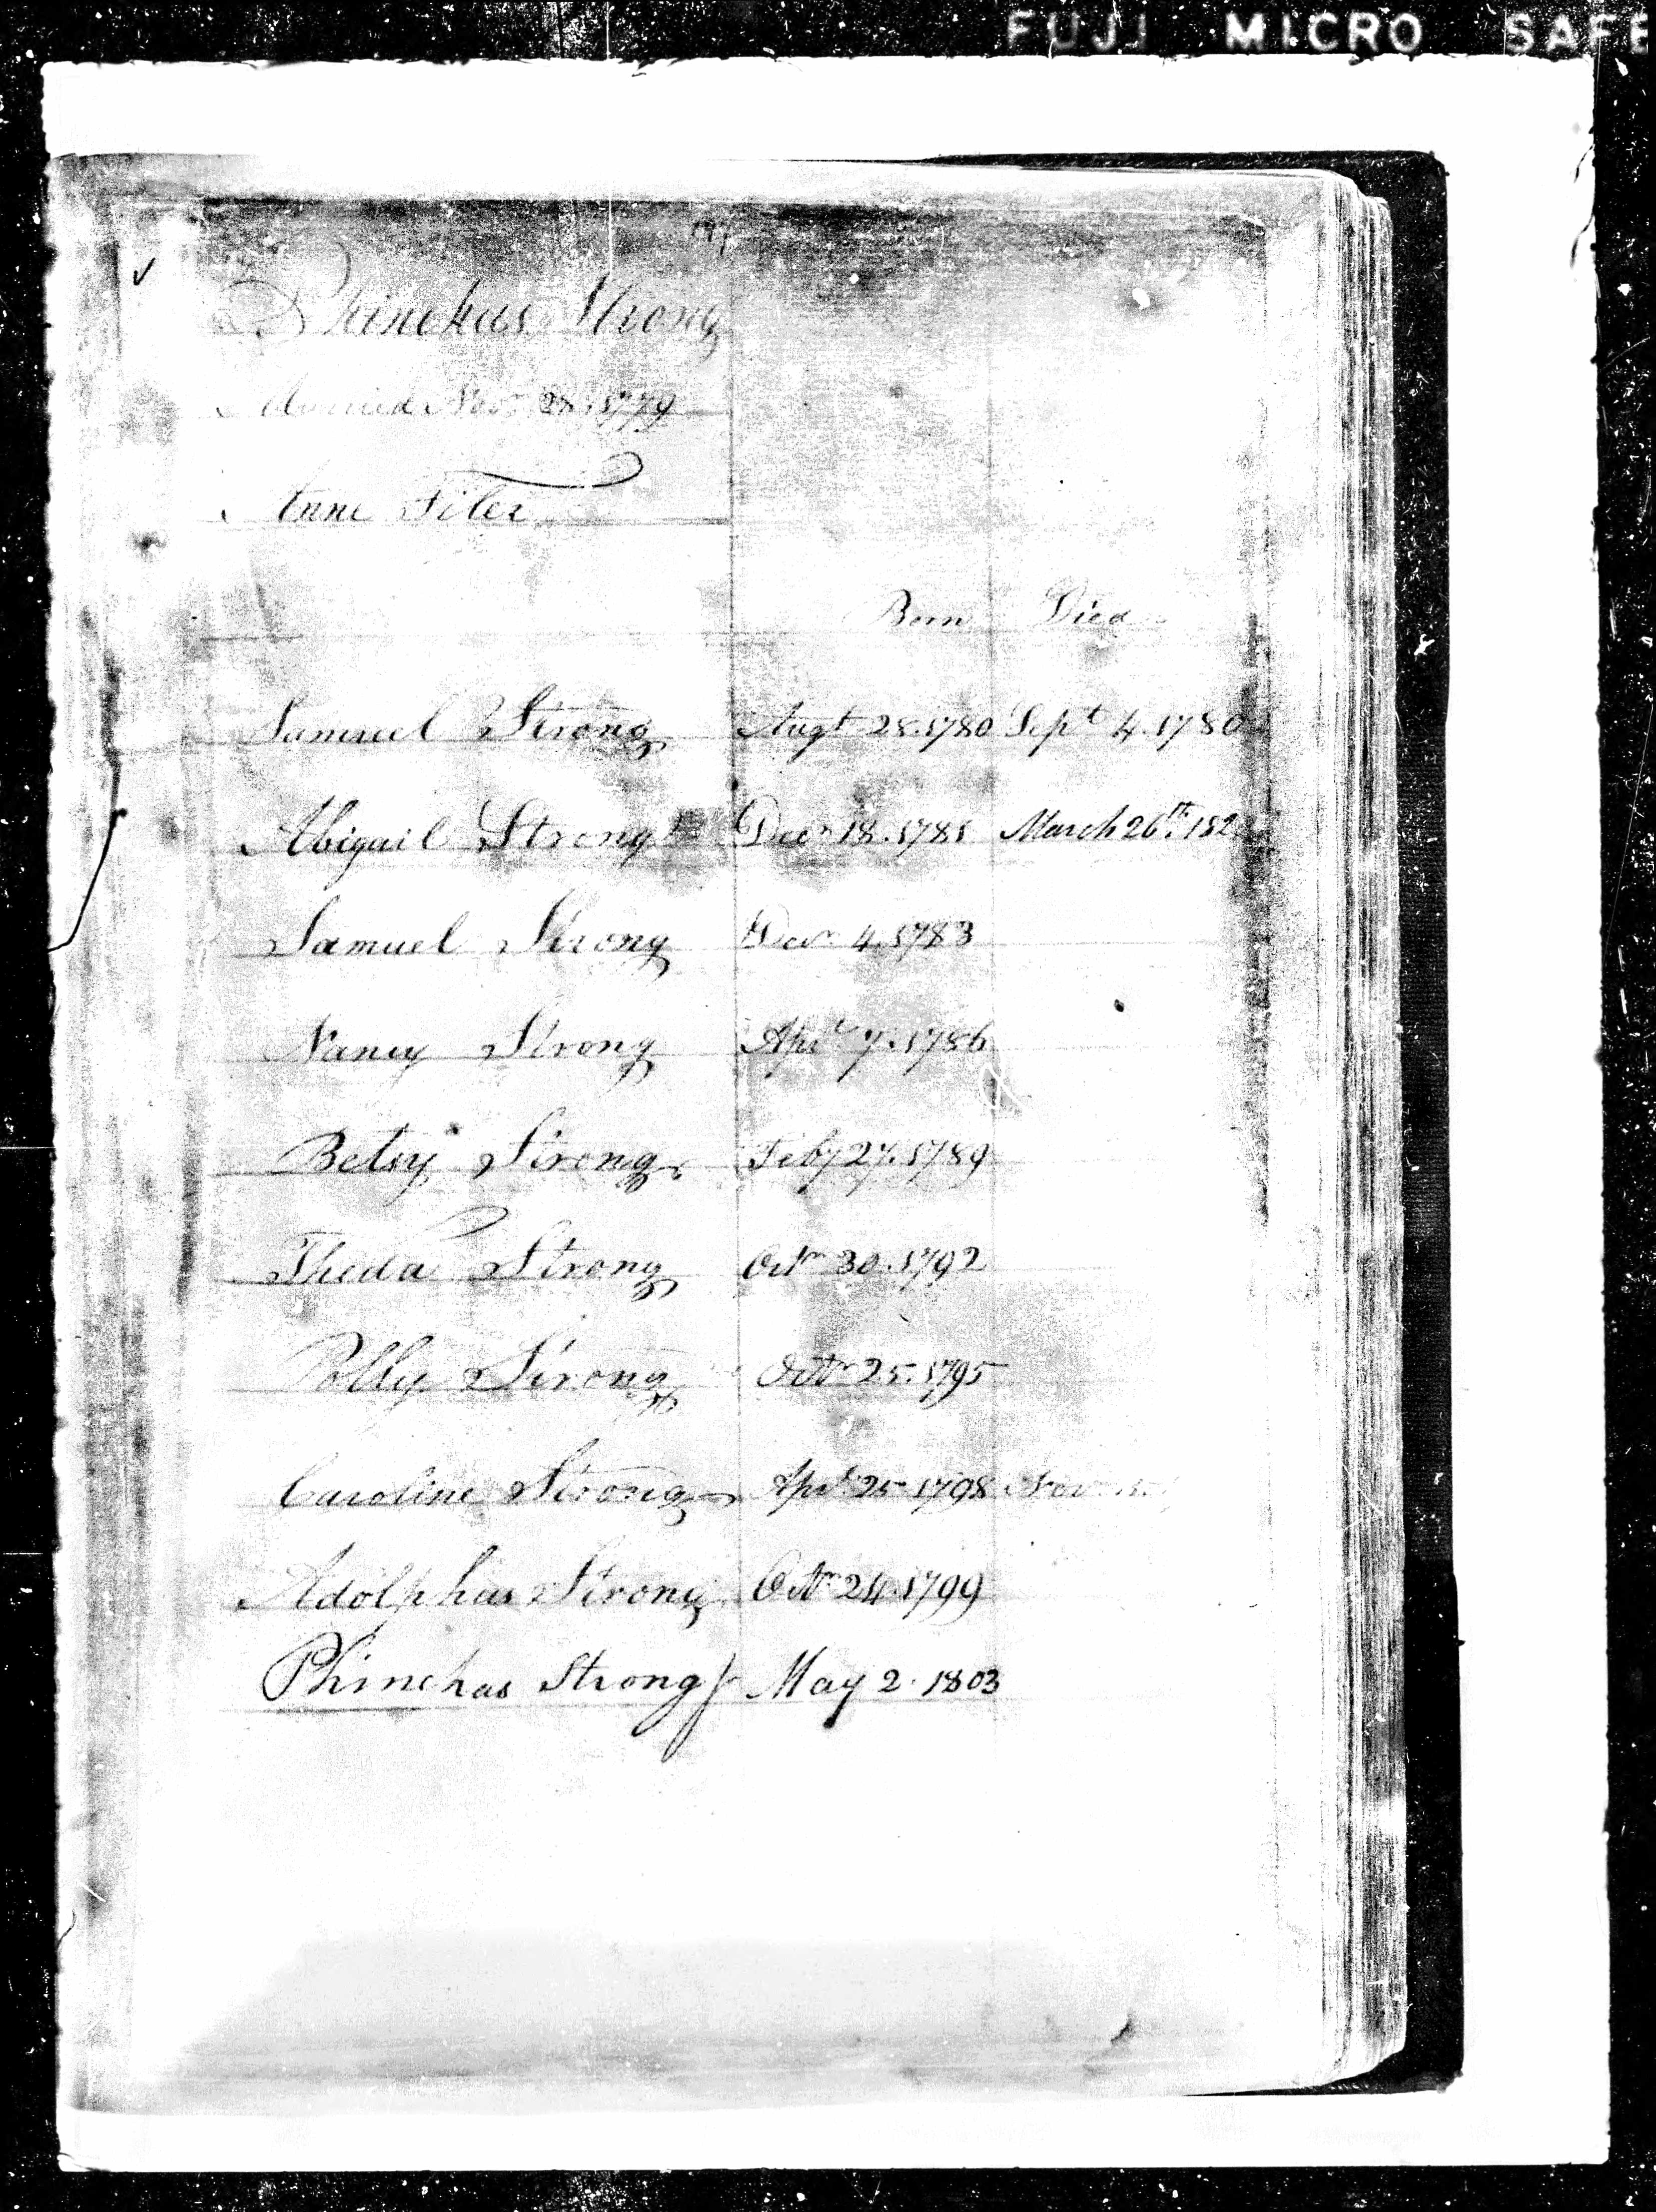 FUJI MICRO SAFE
Phinehas Strong
Married Novr 28. 1779
Anne Filer
Born Died
Samuel Strong Augt 28. 1780 Sept 4. 1780
Abigail Strong Decr 18. 1781 March 26th. 182
Samuel Strong Decr 4. 1783
Nancy Strong Aprl 7. 1786
Betsy Strong Feby 27. 1789
Theda Strong Octr 30. 1792
Polly Strong Octr 25. 1795
Caroline Strong Aprl 25 1798 Novr
Adolphus Strong Octr 24. 1799
Phinehas Strong Jr May 2. 1803